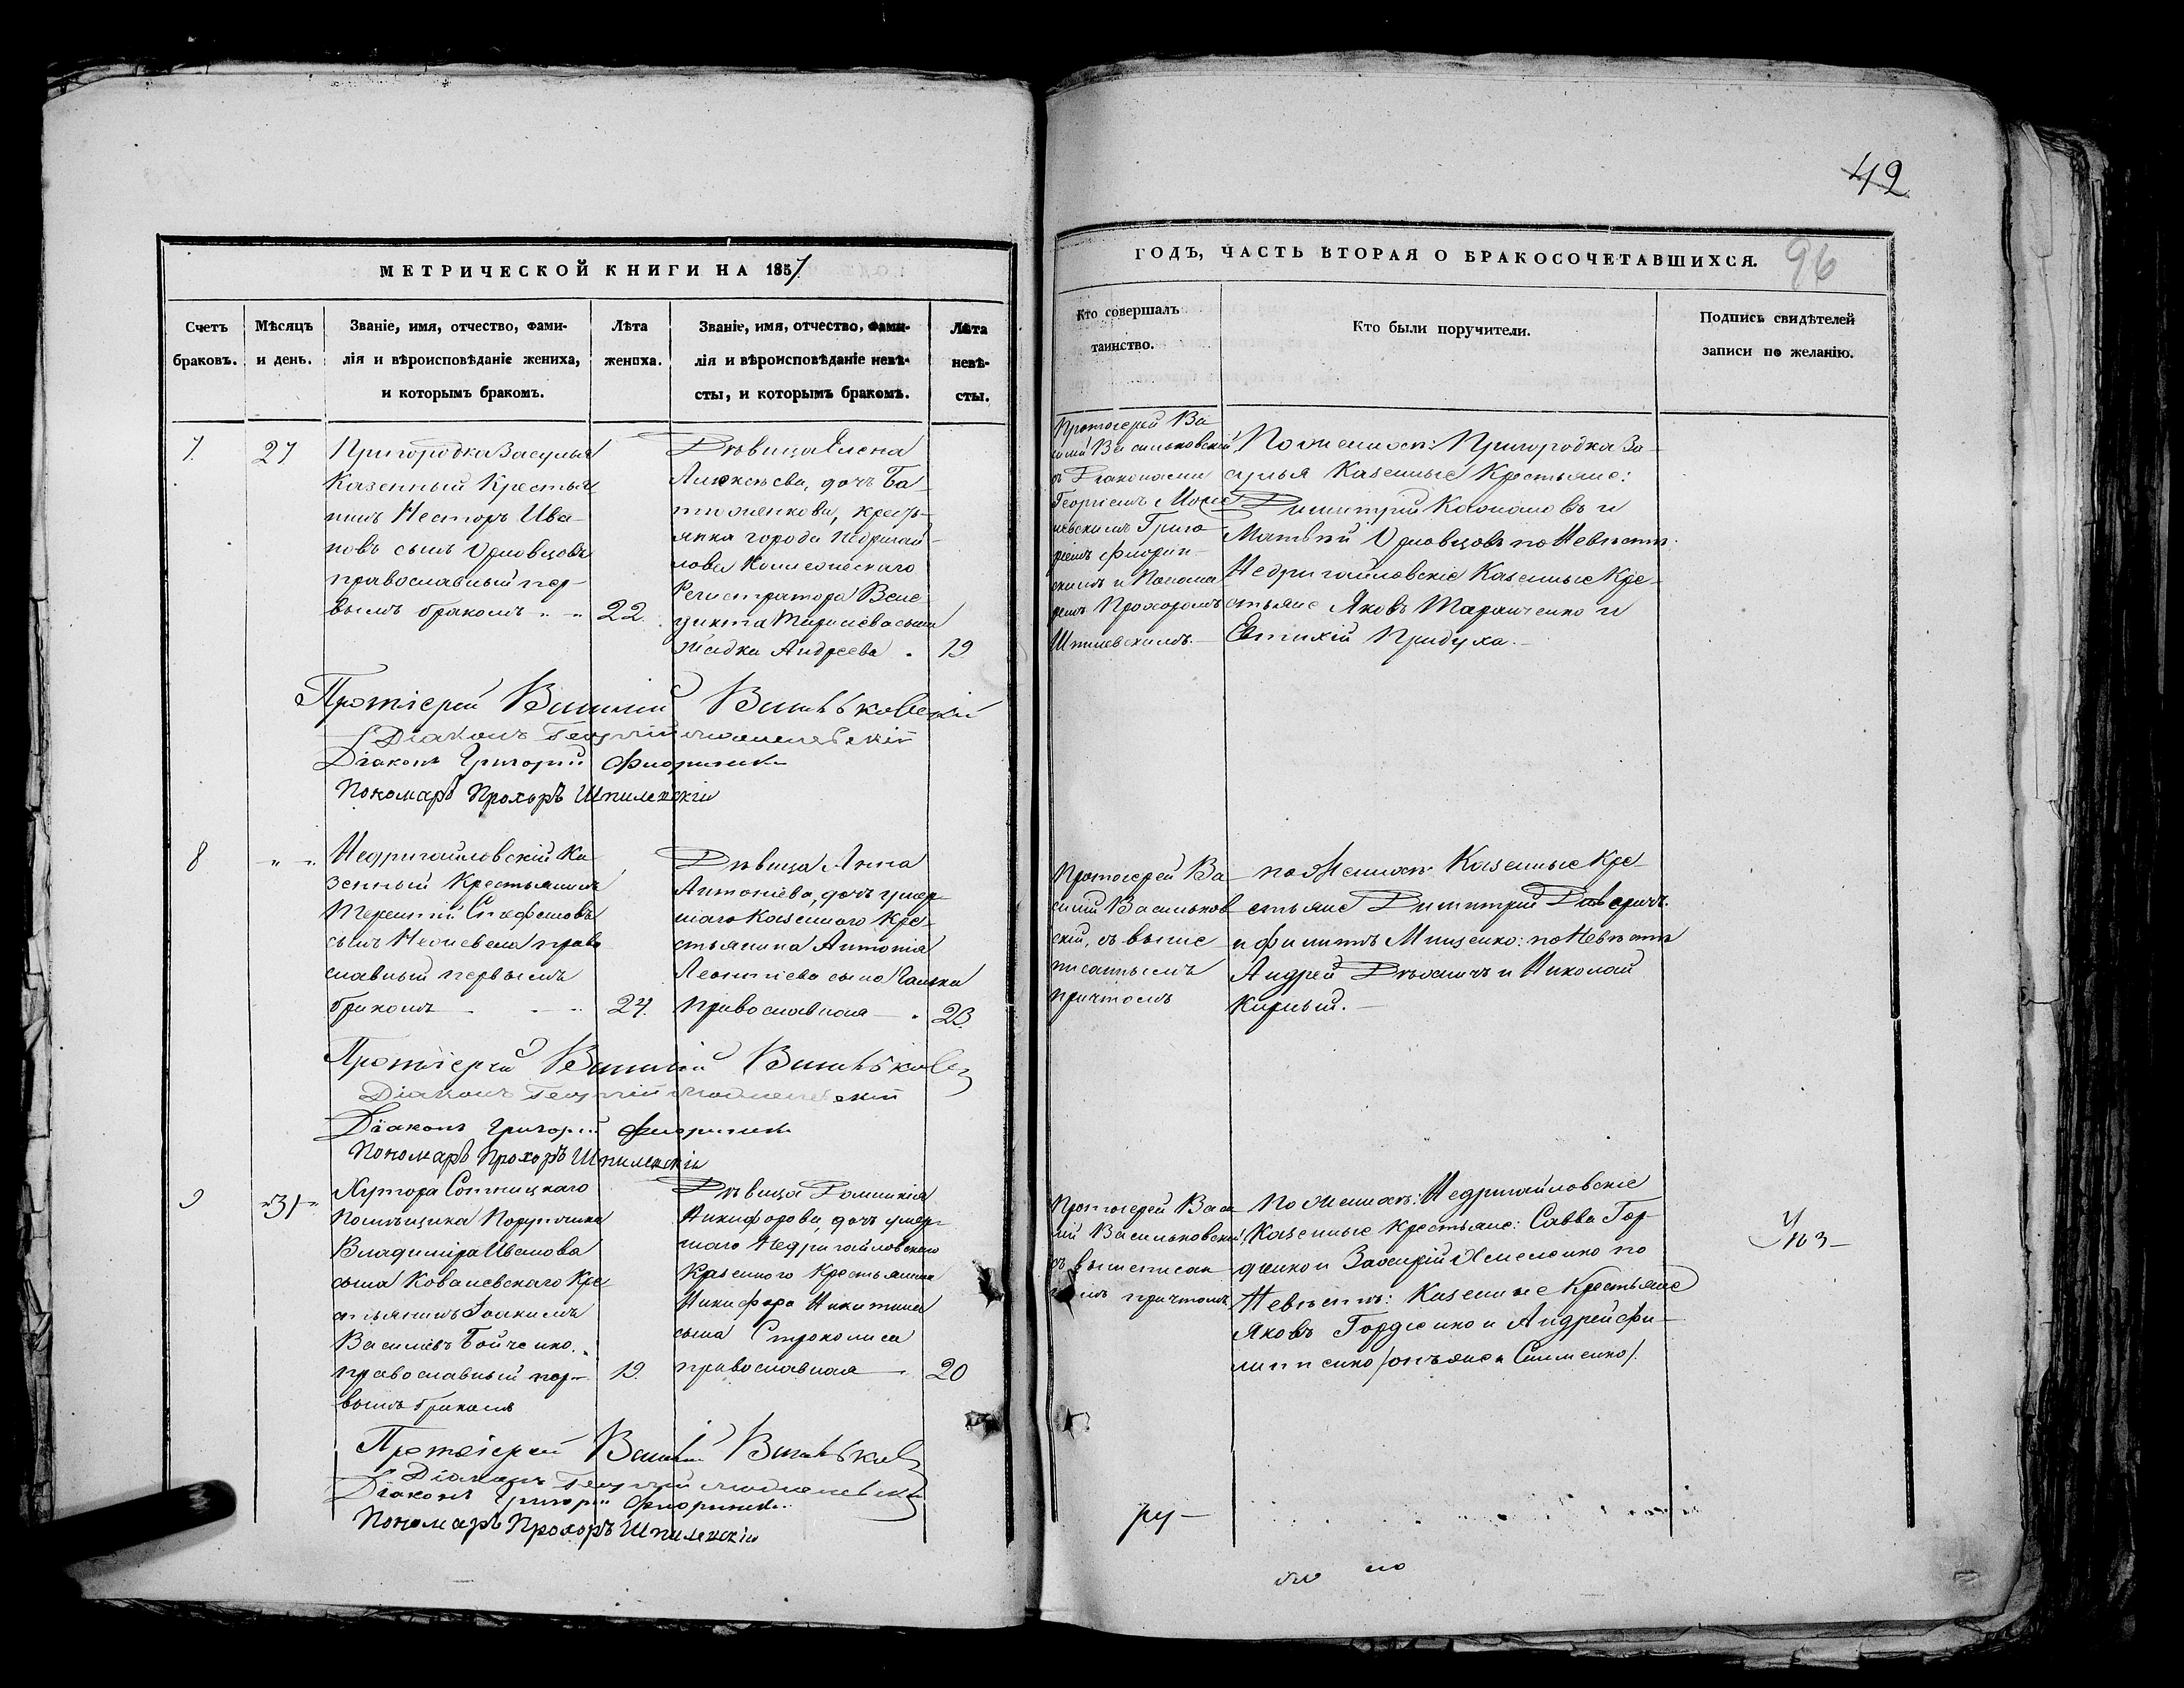 42
96
МЕТРИЧЕСКОЙ КНИГИ НА 1857
ГОДЪ, ЧАСТЬ ВТОРАЯ О БРАКОСОЧЕТАВШИХСЯ.
Счетъ браковъ.
Мѣсяцъ и день.
Званіе, имя, отчество, фами-
лія и вѣроисповѣданіе жениха,
и которымъ бракомъ.
Лѣта жениха.
Званіе, имя, отчество, фами-
лія и вѣроисповѣданіе невѣ-
сты, и которымъ бракомъ.
Лѣта
невѣ-
сты.
Кто совершалъ
таинство.
Кто были поручители.
Подпись свидѣтелей
записи по желанію.
7.
27
Пригородка Засулья
Казенный Крестья
нинъ Несторъ Ива-
новъ сынъ
православный пер-
вымъ бракомъ
22.
Дѣвица Елена
Алексѣева, дочь
крестъ-
янка города Недригай-
лова Коллежскаго
Регистратора Вене
дикта сына
Андреева
19
Протоіерей Ва
силій Васильковскій
съ Діаконами
Георгіемъ
Григо
ріемъ
и Понома
ремъ Прохоромъ
Шпилевскимъ.
По женихѣ: Пригородка За-
сулья Казенные Крестьяне:
Димитрій и
Матвѣй по Невѣстѣ
Недригайловскіе Казенные Кре-
стьяне Яковъ и
Евтихій Придуха.
Протоіерей Василій Васильковскій
Діаконъ Георгій
Діаконъ Григорій
Пономаръ Прохоръ Шпилевскій
8
" "
Недригайловскій Ка
зенный Крестьянинъ
Терентій Стефановъ
сынъ право
славный первымъ
бракомъ
24.
Дѣвица Анна
Антоніева, дочь умер-
шаго Казеннаго Кре-
стьянина Антонія
Леонтіева сына Галки
православная
23.
Протоіерей Ва-
силій Васильков
скій, съ выше
писаннымъ
причтомъ
по Женихѣ Казенные Кре-
стьяне Димитрій
и Филиппъ Мищенко: по Невѣстѣ
Андрей и Николай
Кирный.
Протоіерей Василій Васильковск
Діаконъ Георгій
Діаконъ Григорій
Пономаръ Прохоръ Шпилевскій
9
"31"
Хутора Сотницкаго
Помѣщика Поручика
Владиміра Иванова
сына Ковалевскаго Кре
стьянинъ Іоакимъ
Василіевъ Бойченко.
православный пер-
вымъ бракомъ
19.
Дѣвица Домникія
Никифорова, дочь умер-
шаго Недригайловскаго
Казеннаго Крестьянина
Никифора Никитина
сына
православная
20
Протоіерей Васи
лій Васильковскій,
съ вышеписан
нымъ причтомъ
По женихѣ: Недригайловскіе
Казенные Крестьяне: Савва Гор-
дѣенко и по
Невѣстѣ: Казенные Крестьяне
Яковъ Гордѣенко и Андрей Фи-
липпенко
Протоіерей Василій Васильков
Діаконъ Георгій
Діаконъ Григорій
Пономаръ Прохоръ Шпилевскій
ру-